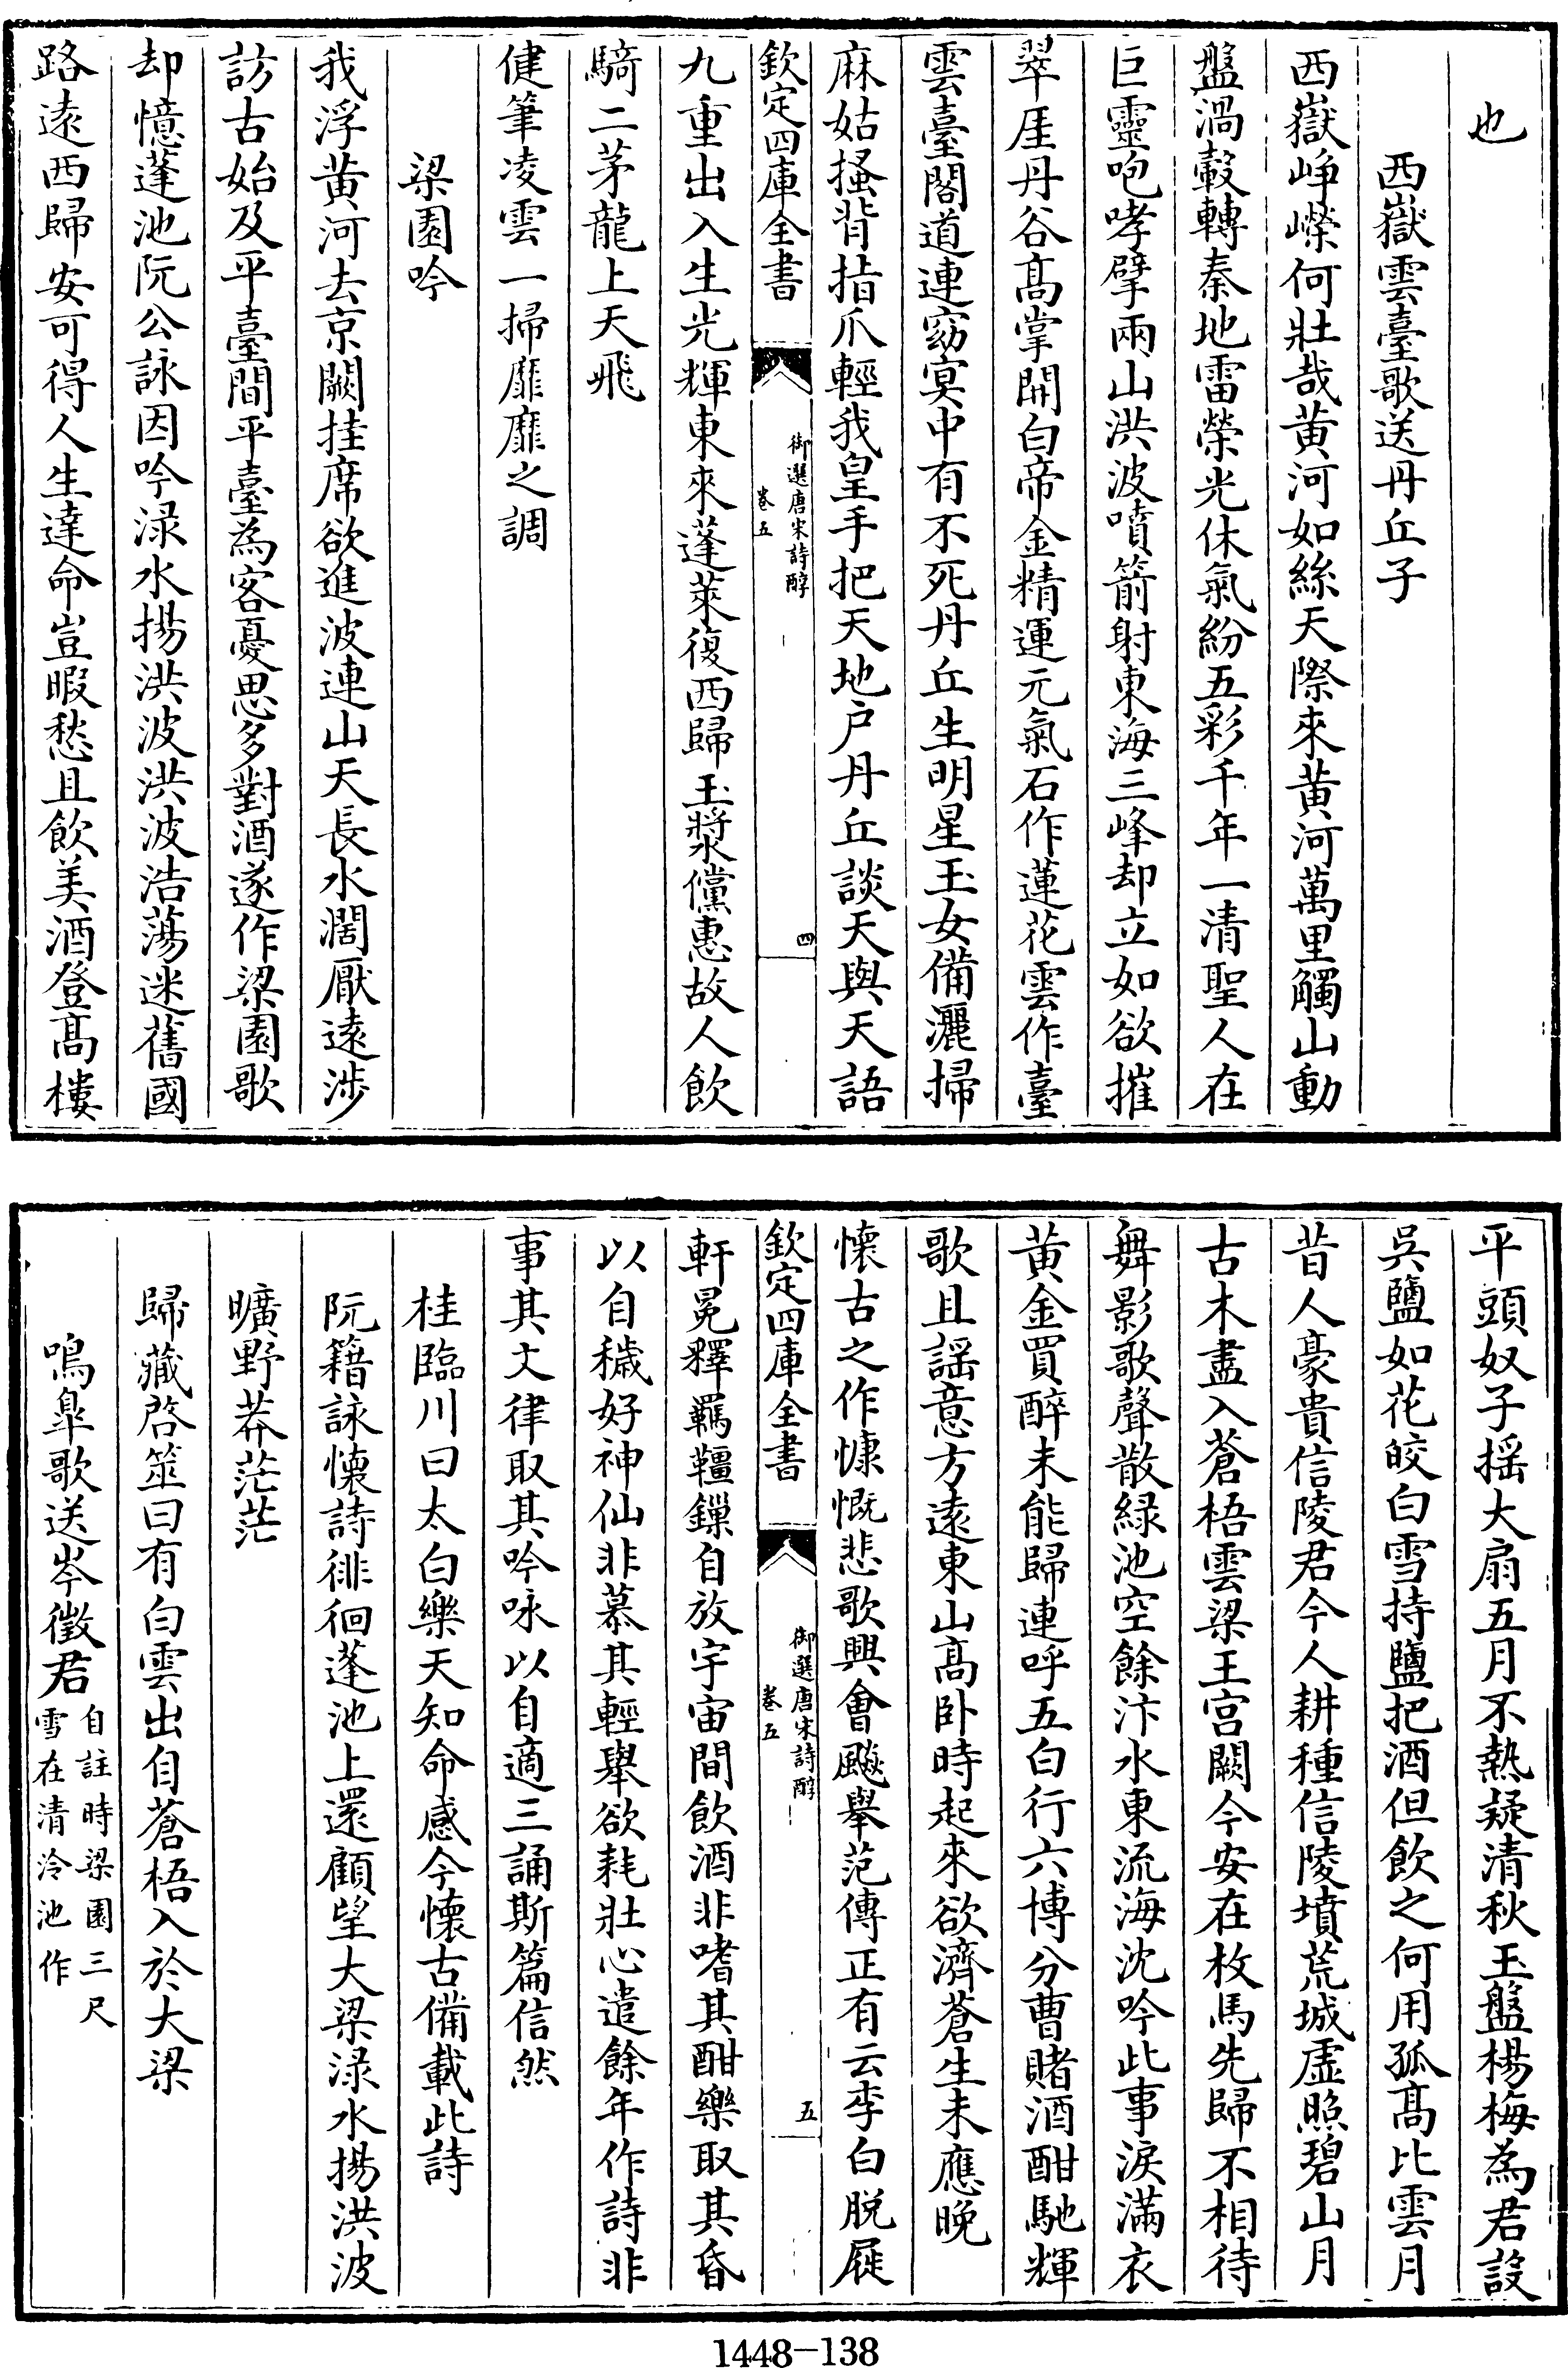 也
西嶽雲臺歌送丹丘子
西嶽崢嶸何壯哉黄河如絲天際來黄河萬里觸山動
盤渦轂轉秦地雷榮光休氣紛五彩千年一清聖人在
巨靈咆哮擘兩山洪波噴箭射東海三峰却立如欲摧
翠厓丹谷高掌開白帝金精運元氣石作蓮花雲作臺
雲臺閣道連窈冥中有不死丹丘生明星玉女備灑掃
麻姑搔背指爪輕我皇手把天地户丹丘談天與天語
欽定四庫全書
御選唐宋詩醇
卷五
四
九重出入生光輝東來蓬萊復西歸玉漿儻惠故人飲
騎二茅龍上天飛
健筆凌雲一掃靡靡之調
梁園吟
我浮黄河去京闕挂席欲進波連山天長水濶厭遠涉
訪古始及平臺間平臺為客憂思多對酒遂作梁園歌
却憶蓬池阮公詠因吟渌水揚洪波洪波浩蕩迷舊國
路遠西歸安可得人生達命豈暇愁且飲美酒登高樓
平頭奴子揺大扇五月不熱疑清秋玉盤楊梅為君設
吳鹽如花皎白雪持鹽把酒但飲之何用孤高比雲月
昔人豪貴信陵君今人耕種信陵墳荒城虚照碧山月
古木盡入蒼梧雲梁王宫闕今安在枚馬先歸不相待
舞影歌聲散緑池空餘汴水東流海沈吟此事淚滿衣
黄金買醉未能歸連呼五白行六博分曹賭酒酣馳輝
歌且謡意方遠東山高卧時起來欲濟蒼生未應晚
懷古之作慷慨悲歌興會飈舉范傳正有云李白脱屣
欽定四庫全書
御選唐宋詩醇
卷五
五
軒冕釋羈韁鏁自放宇宙間飲酒非嗜其酣樂取其昏
以自穢好神仙非慕其輕舉欲耗壯心遣餘年作詩非
事其文律取其吟咏以自適三誦斯篇信然
桂臨川曰太白樂天知命感今懷古備載此詩
阮籍詠懷詩徘徊蓬池上還顧望大梁渌水揚洪波
曠野莽茫茫
歸藏啓筮曰有白雲出自蒼梧入於大梁
鳴臯歌送岑徵君
自註時梁園三尺
雪在清泠池作
1448-138